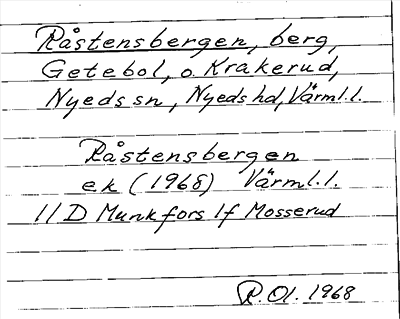 Råstensbergen, berg,
Getebol, o. Krakerud,
Nyeds sn, Nyeds hd, Värml.l.
Råstensbergen
ek (1968) Värml.l.
11 D Munkfors 1f Mosserud
R.Ol. 1968